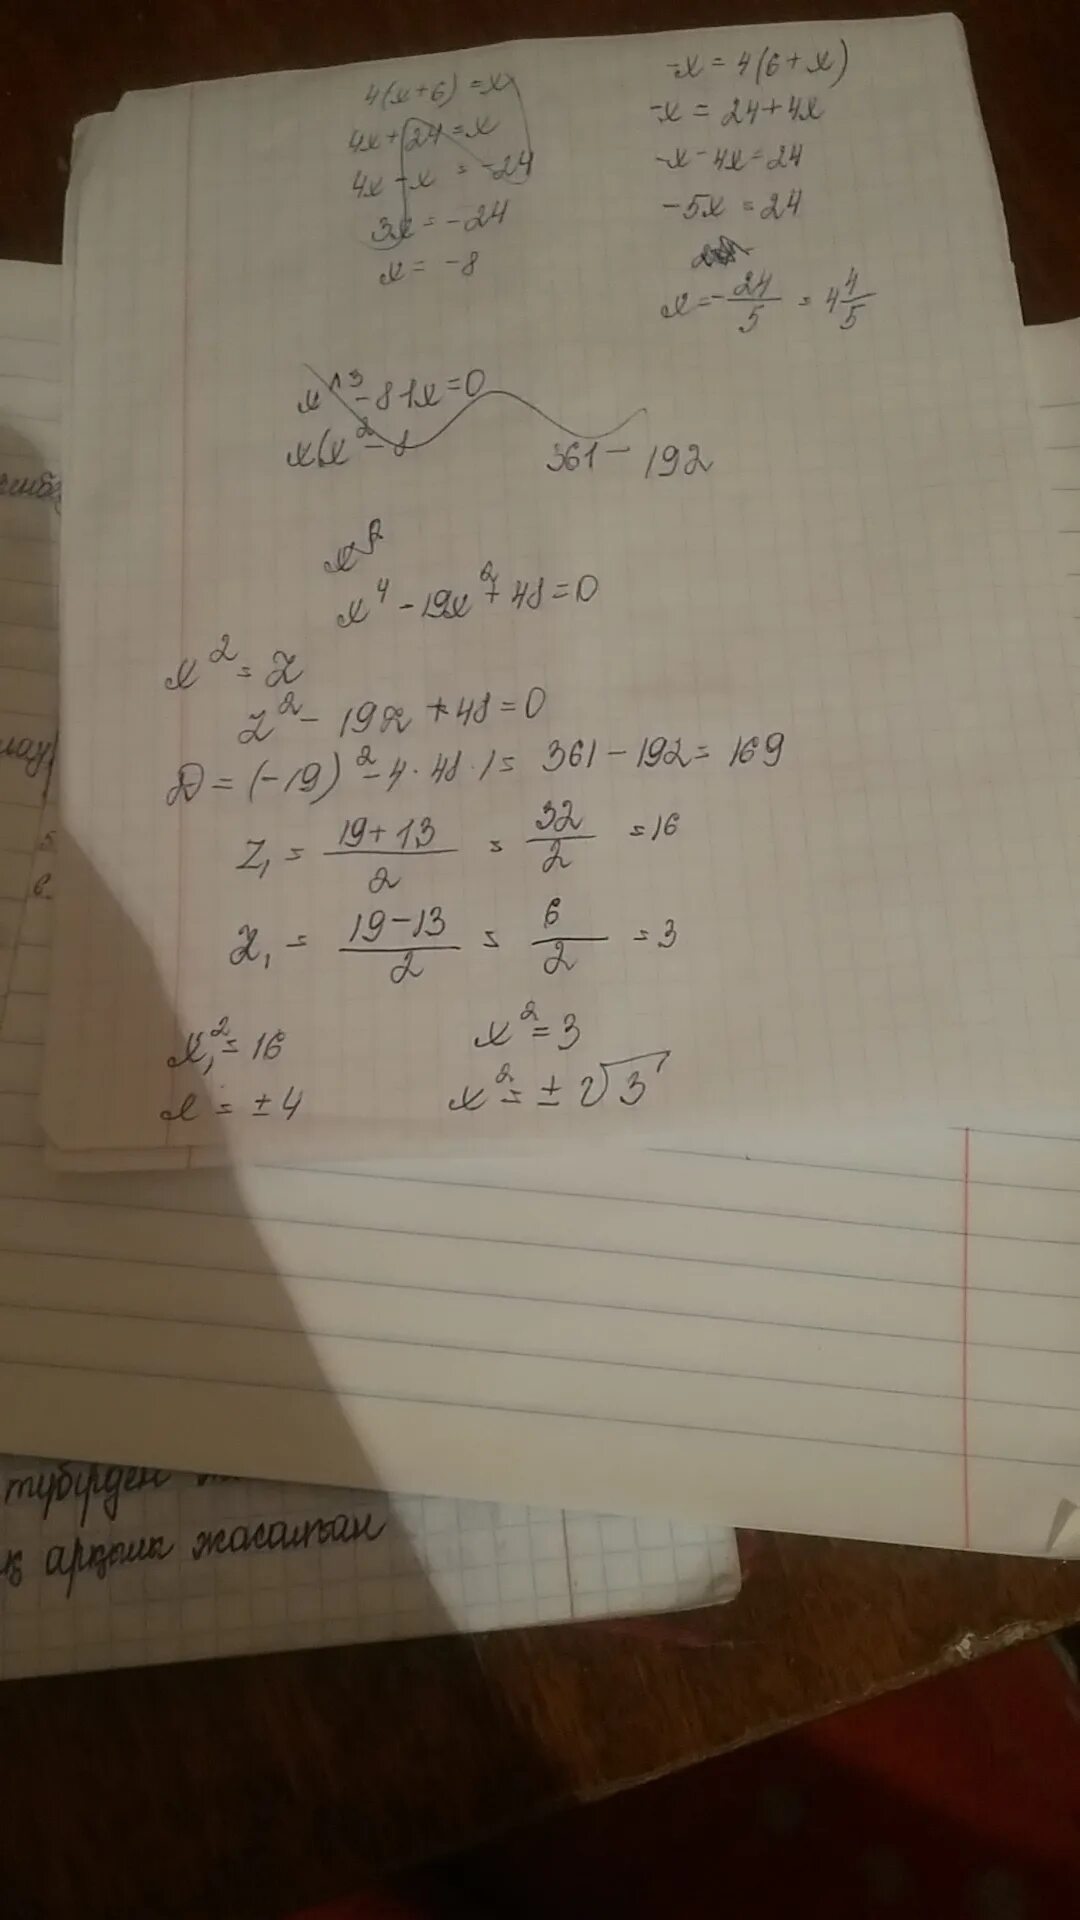 4(x+6) = x
4x+24 = x
4x - x = -24
3x = -24
x = -8
-x = 4(6+x)
-x = 24+4x
-x - 4x = 24
-5x = 24
x = -24/5 = 4 4/5
x³ - 81x = 0
x(x² - 8
361 - 192
x²
x⁴ - 19x² + 48 = 0
x² = z
z² - 19z + 48 = 0
D = (-19)² - 4 · 48 · 1 = 361 - 192 = 169
z₁ = (19+13)/2 = 32/2 = 16
z₁ = (19-13)/2 = 6/2 = 3
x₁² = 16
x = ±4
x² = 3
x² = ±√3
түбірден
арқылы жасалған